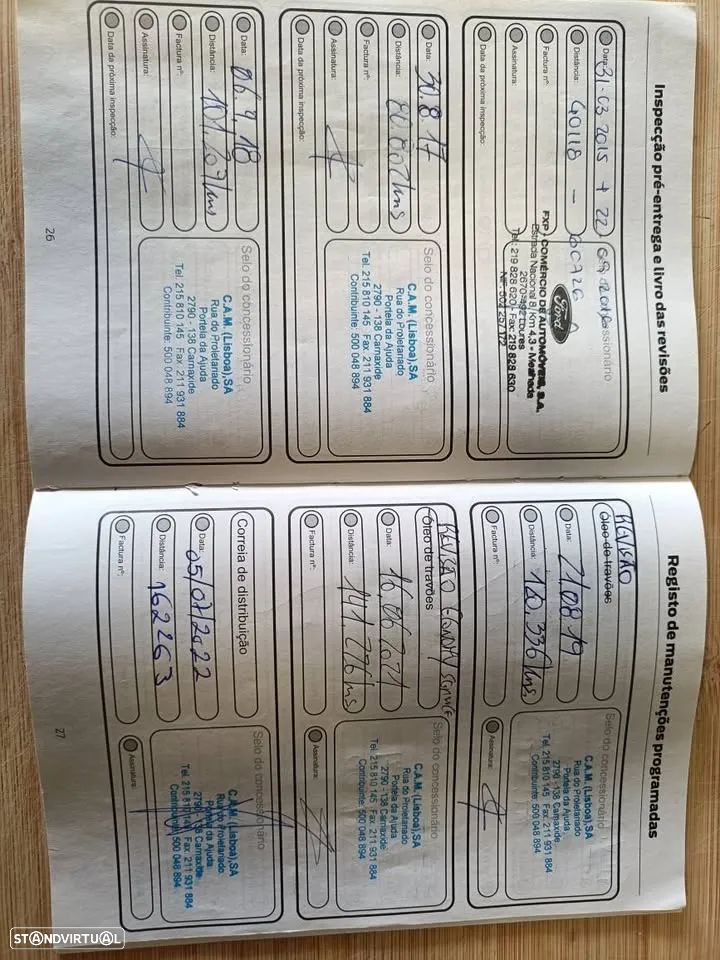 Inspecção pré-entrega e livro das revisões
Data: 31-03 2015 + 22
Distância: 40118 -
Factura nº:
Assinatura:
Data da próxima inspecção:
Ford
FXP - COMÉRCIO DE AUTOMÓVEIS, S.A.
Estrada Nacional 8 / Km 4,3 - Mealhada
2670-492 Loures
Tel.: 219 828 620 / Fax: 219 828 630
NIF: 502 257 172
Data: 30.8.17
Distância:
Factura nº:
Assinatura:
Data da próxima inspecção:
Selo do concessionário
C.A.M. (Lisboa),SA
Rua do Proletariado
Portela da Ajuda
2790 - 138 Carnaxide
Tel. 215 810 145 Fax. 211 931 884
Contribuinte: 500 048 894
Data: 06.9.18
Distância: 101.707 kms
Factura nº:
Assinatura:
Data da próxima inspecção:
Selo do concessionário
C.A.M. (Lisboa),SA
Rua do Proletariado
Portela da Ajuda
2790 - 138 Carnaxide
Tel. 215 810 145 Fax. 211 931 884
Contribuinte: 500 048 894
26
Registo de manutenções programadas
REVISÃO
Óleo de travões
Data: 21.08.19
Distância: 120.336 kms
Factura nº:
Selo do concessionário
C.A.M. (Lisboa),SA
Rua do Proletariado
Portela da Ajuda
2790 - 138 Carnaxide
Tel. 215 810 145 Fax. 211 931 884
Contribuinte: 500 048 894
Assinatura:
REVISÃO
Óleo de travões
Data: 16.06.2021
Distância: 141.276 kms
Factura nº:
Selo do concessionário
C.A.M. (Lisboa),SA
Rua do Proletariado
Portela da Ajuda
2790 - 138 Carnaxide
Tel. 215 810 145 Fax. 211 931 884
Contribuinte: 500 048 894
Assinatura:
Correia de distribuição
Data: 05/07/2022
Distância: 162263
Factura nº:
Selo do concessionário
C.A.M. (Lisboa),SA
Rua do Proletariado
Portela da Ajuda
2790 - 138 Carnaxide
Tel. 215 810 145 Fax. 211 931 884
Contribuinte: 500 048 894
Assinatura:
27
STANDVIRTUAL